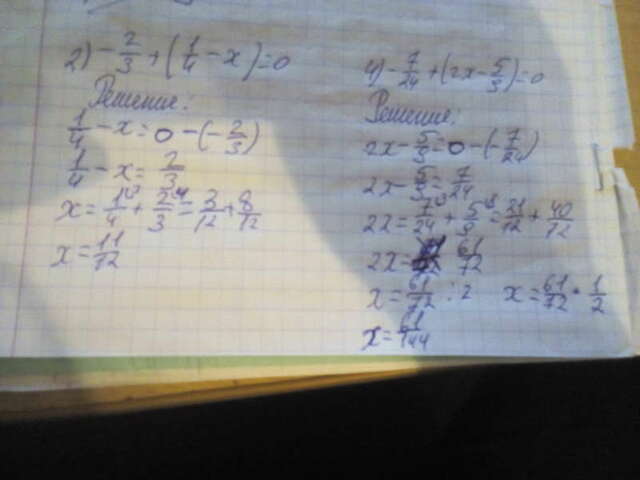 2) -2/3 + (1/4 - x) = 0
Решение:
1/4 - x = 0 - (-2/3)
1/4 - x = 2/3
x = 1/4 + 2/3 = 3/12 + 8/12
x = 11/12
4) -7/24 + (2x - 5/9) = 0
Решение:
2x - 5/9 = 0 - (-7/24)
2x - 5/9 = 7/24
2x = 7/24 + 5/9 = 21/72 + 40/72
2x = 61/72
x = 61/72 : 2 x = 61/72 · 1/2
x = 61/144